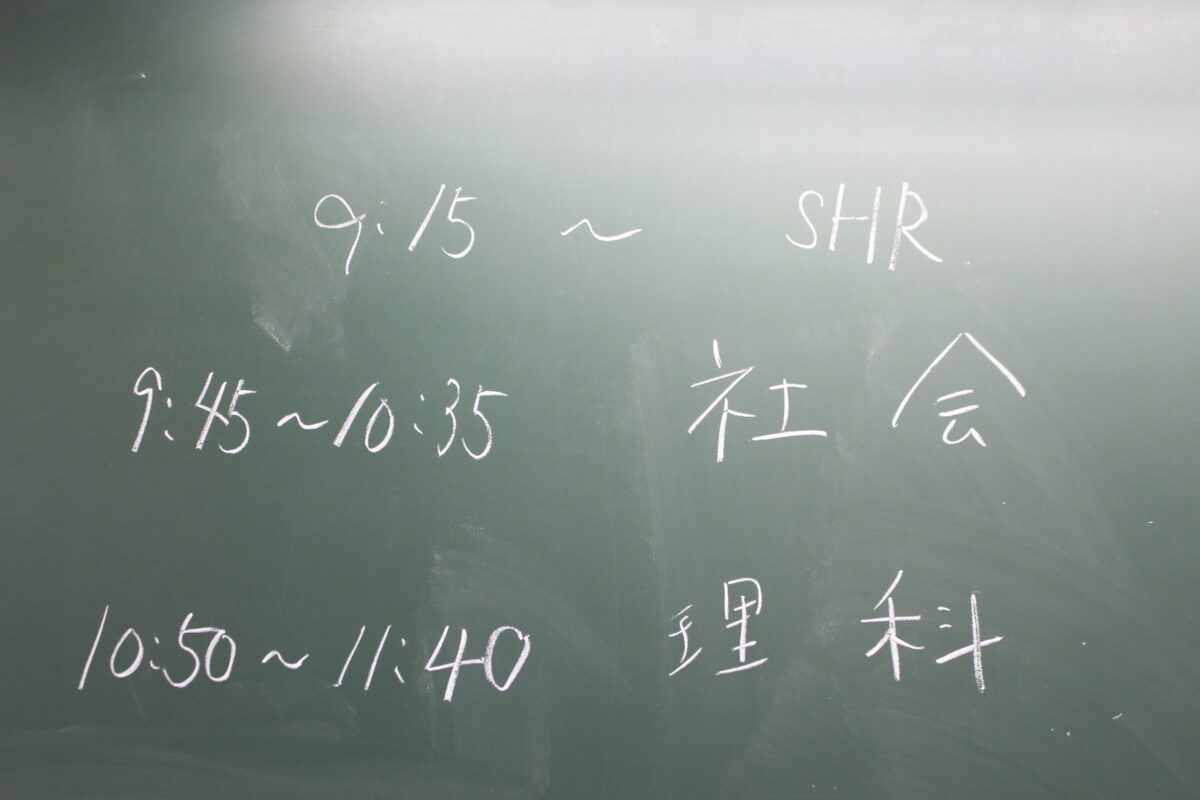 9:15 ~ SHR
9:45~10:35 社会
10:50~11:40 理科